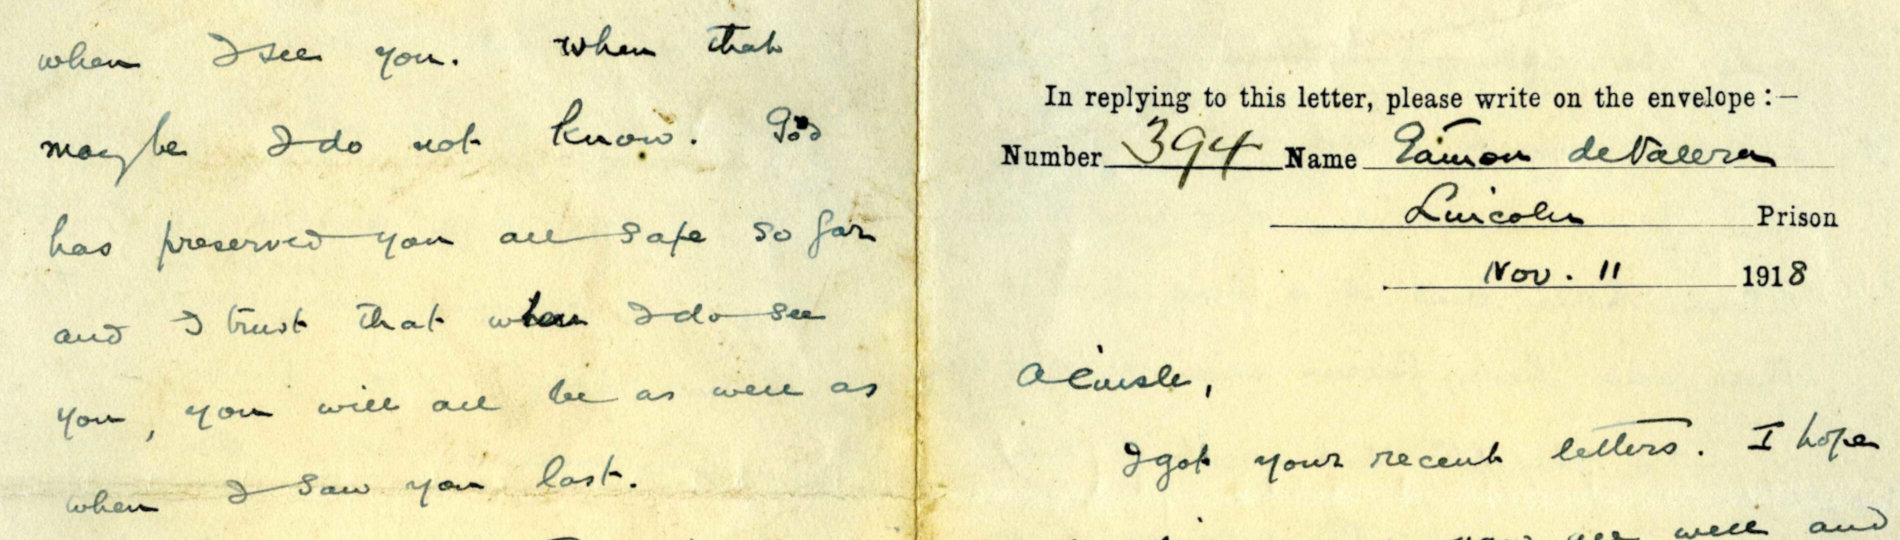 when I see you. When that
maybe I do not know. God
has preserved you all safe so far
and I trust that when I do see
you, you will all be as well as
when I saw you last.
In replying to this letter, please write on the envelope :—
Number 394 Name Éamon de Valera
Lincoln Prison
Nov. 11 1918
A Éinsle,
I got your recent letters. I hope
all well and